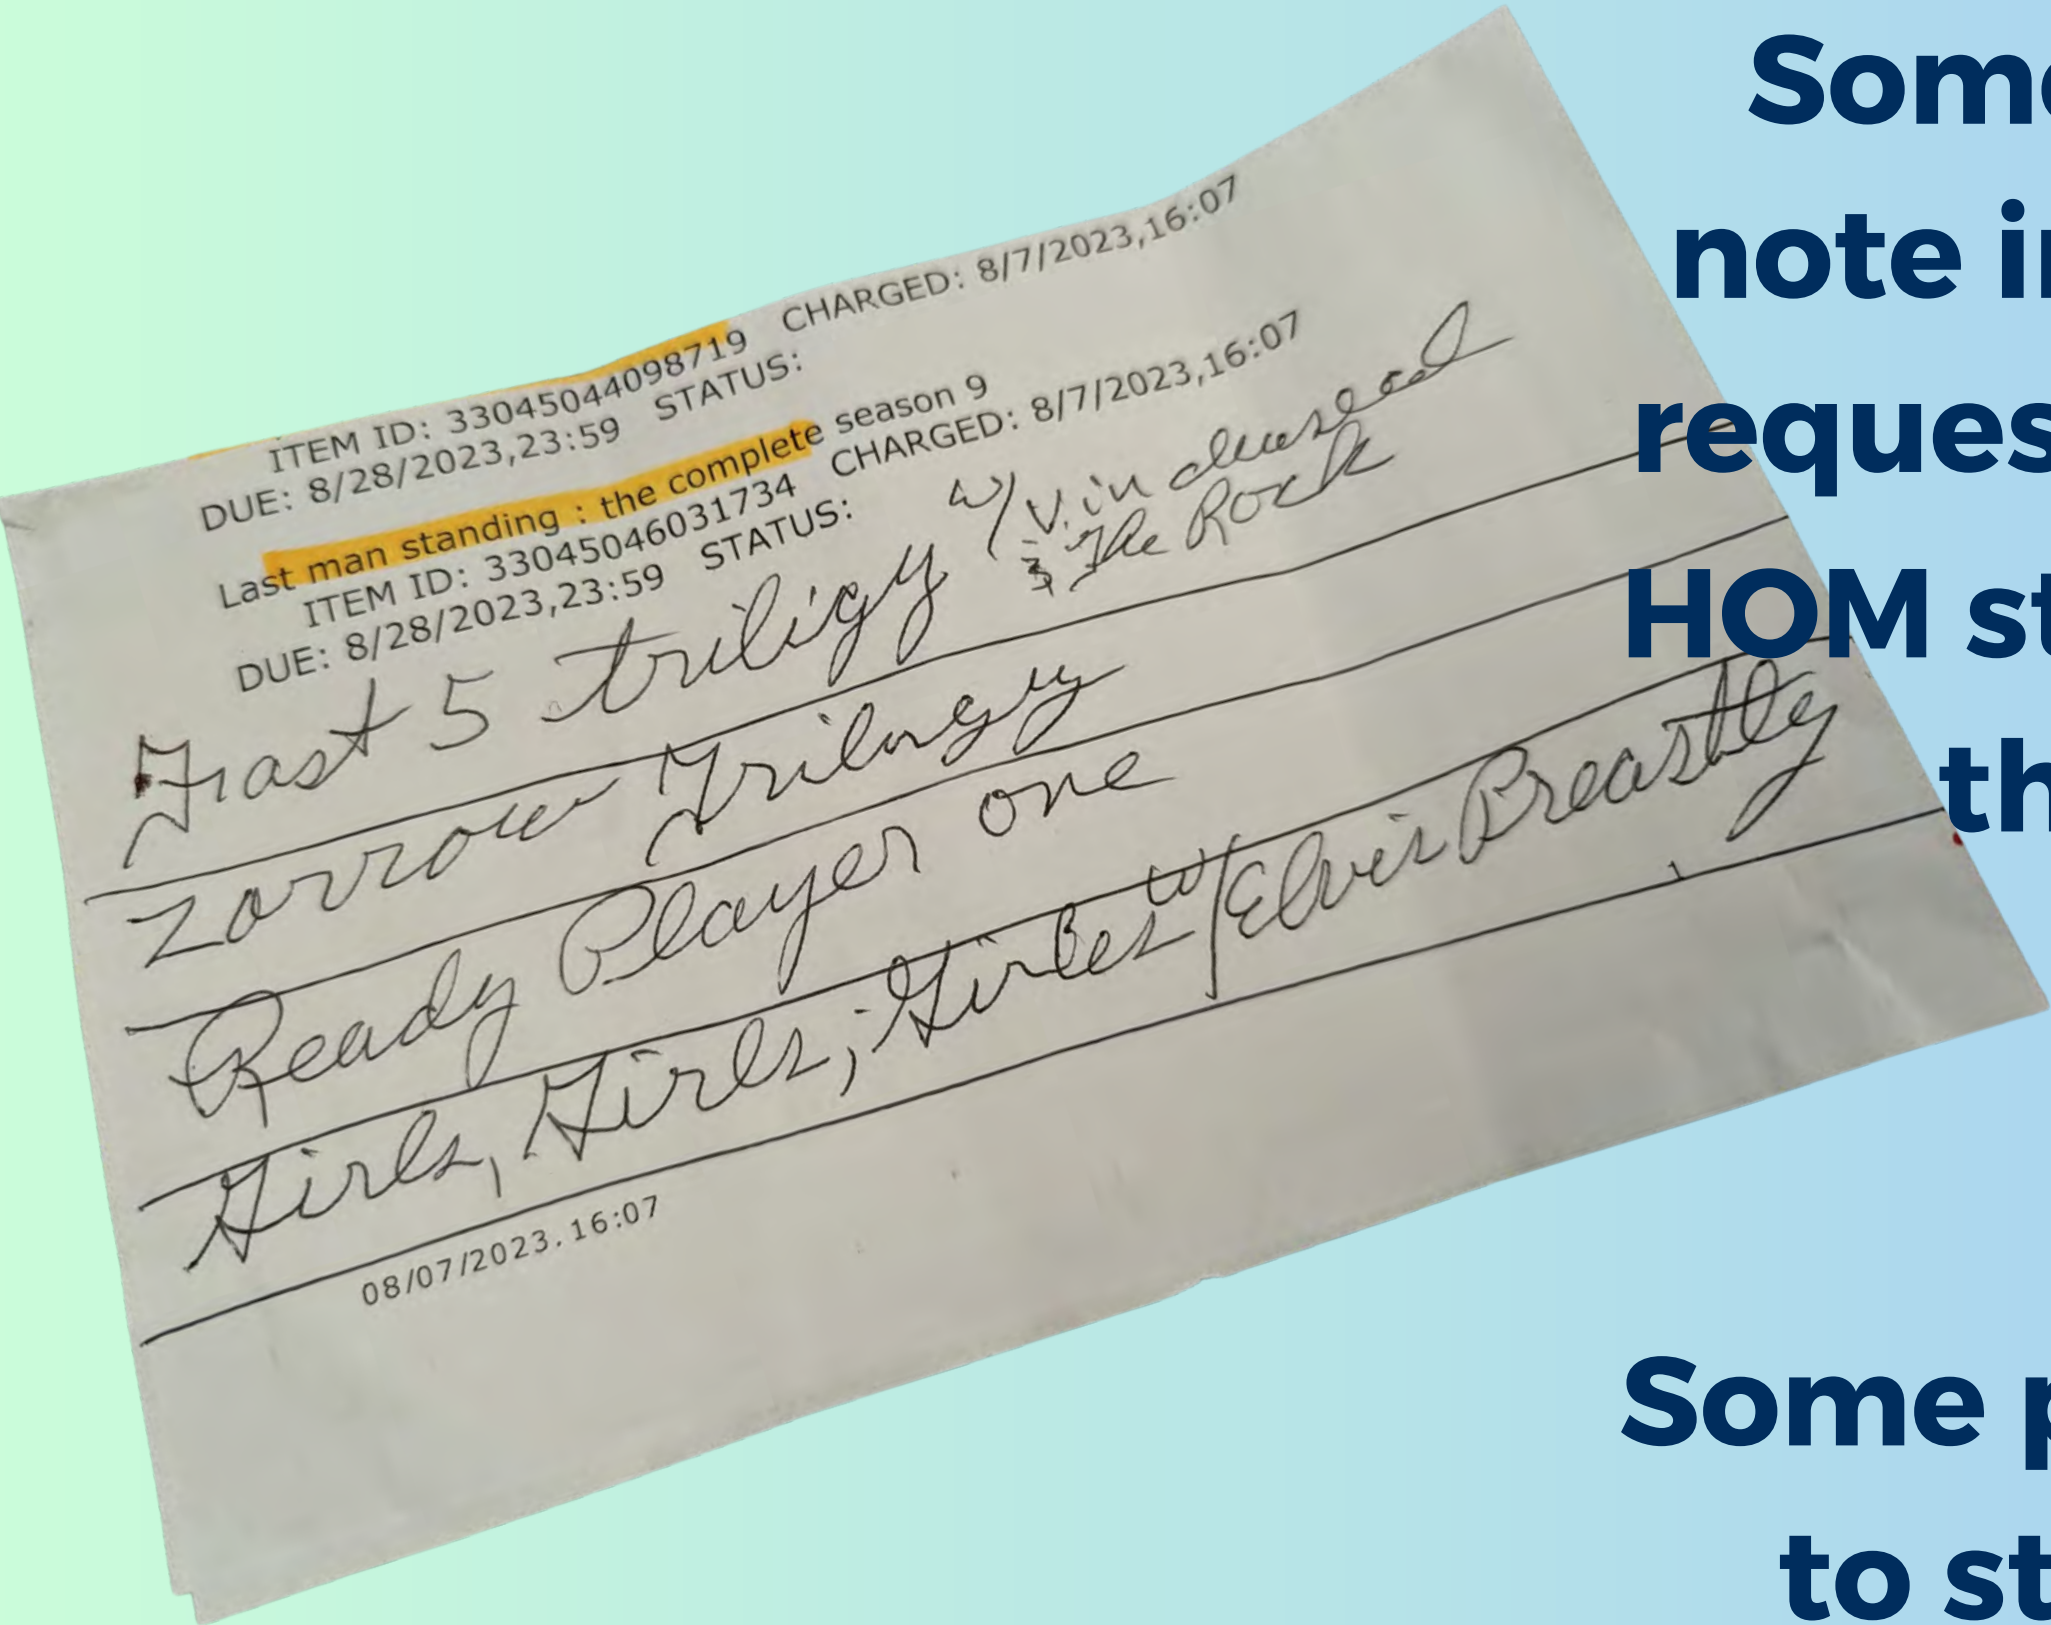 ITEM ID: 33045044098719 CHARGED: 8/7/2023,16:07
DUE: 8/28/2023,23:59 STATUS:
Last man standing : the complete season 9
ITEM ID: 33045046031734 CHARGED: 8/7/2023,16:07
DUE: 8/28/2023,23:59 STATUS:
Fast 5 triligy w/ Vin
& The Rock
Zorrow Trilogy
Ready Player one
Girls, Girls, Girls w/ Elvis
08/07/2023.16:07
Som
note i
reques
HOM st
th
Some p
to st